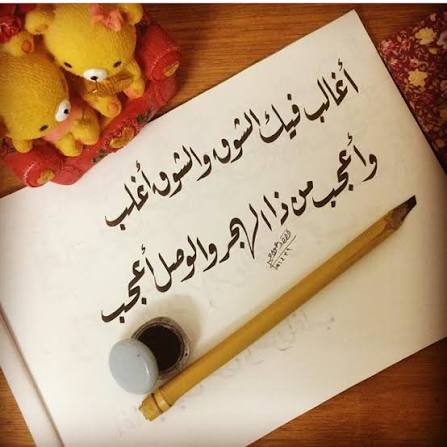 أغالب فيك الشوق والشوق أغلب
وأعجب من ذا الهجر والوصل أعجب